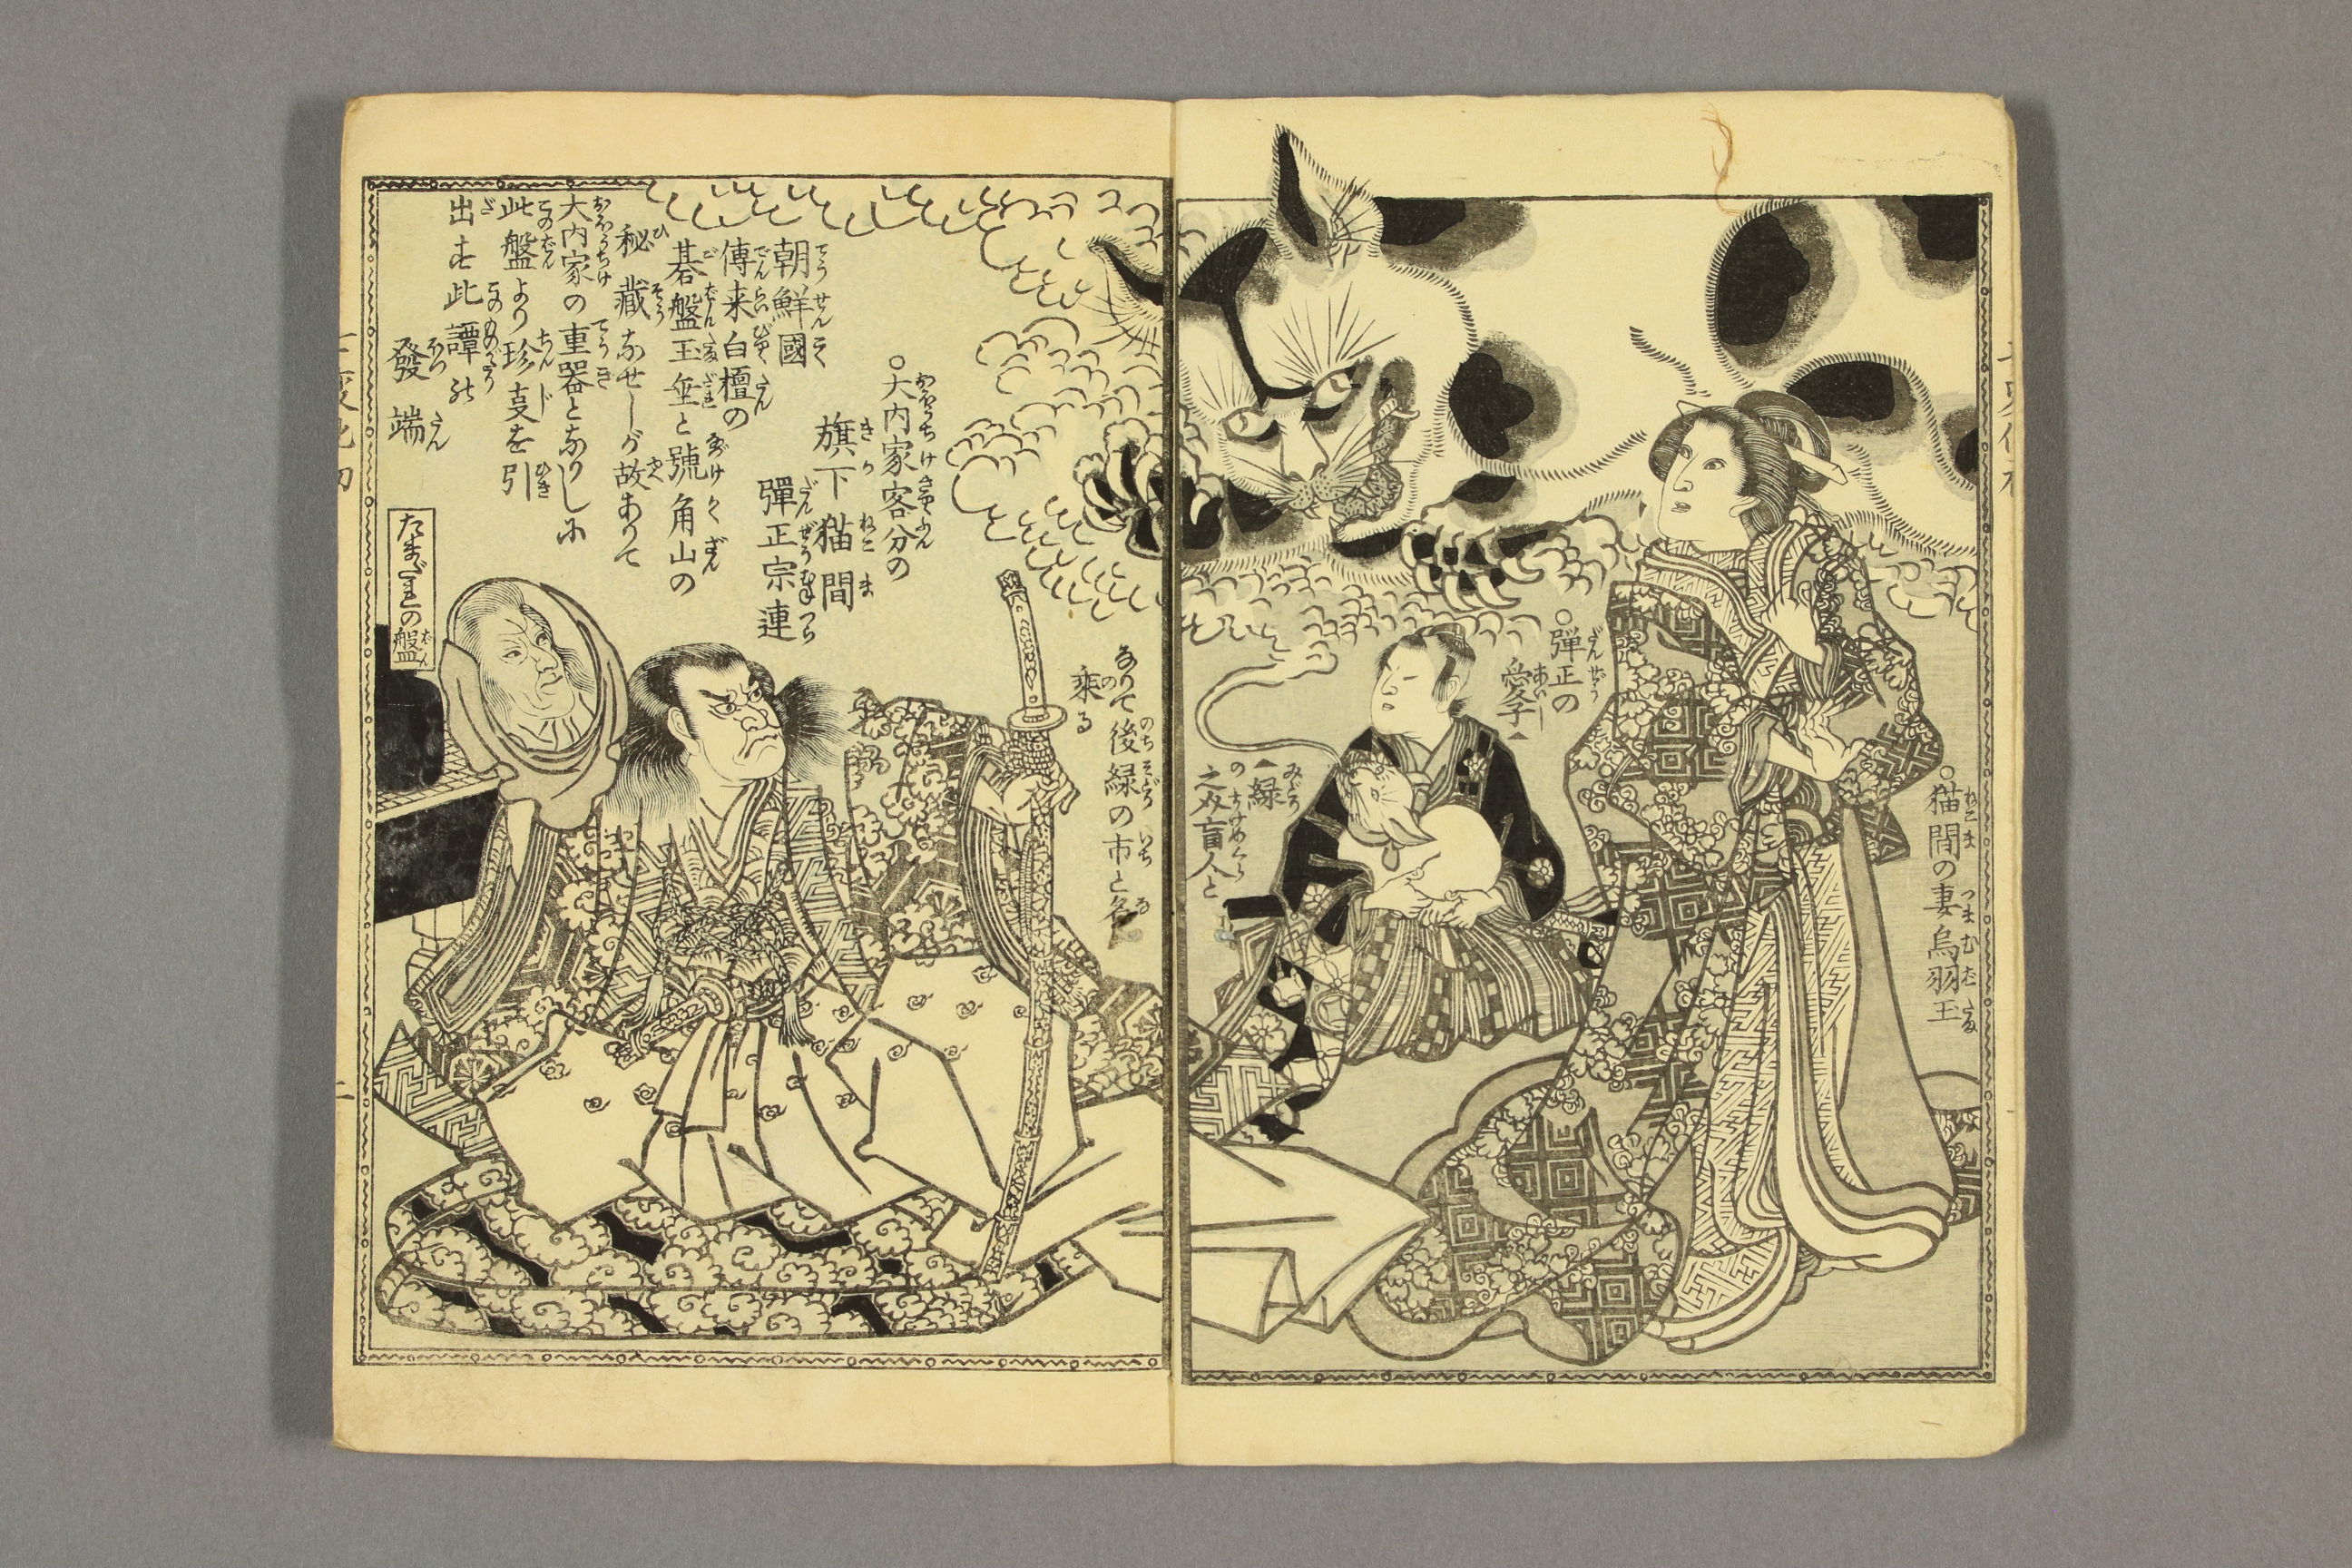 ○猫間の妻烏羽玉
○弾正の
愛子▲
▲緑
之丞盲人と
なりて後緑の市と名
乗る
○大内家客分の
旗下猫間
彈正宗連
朝鮮國
傳来白檀の
碁盤玉垂と號角山の
秘藏なせしが故ありて
大内家の重器となりしに
此盤より珍事を引
出す此譚の
發端
たまだれの盤